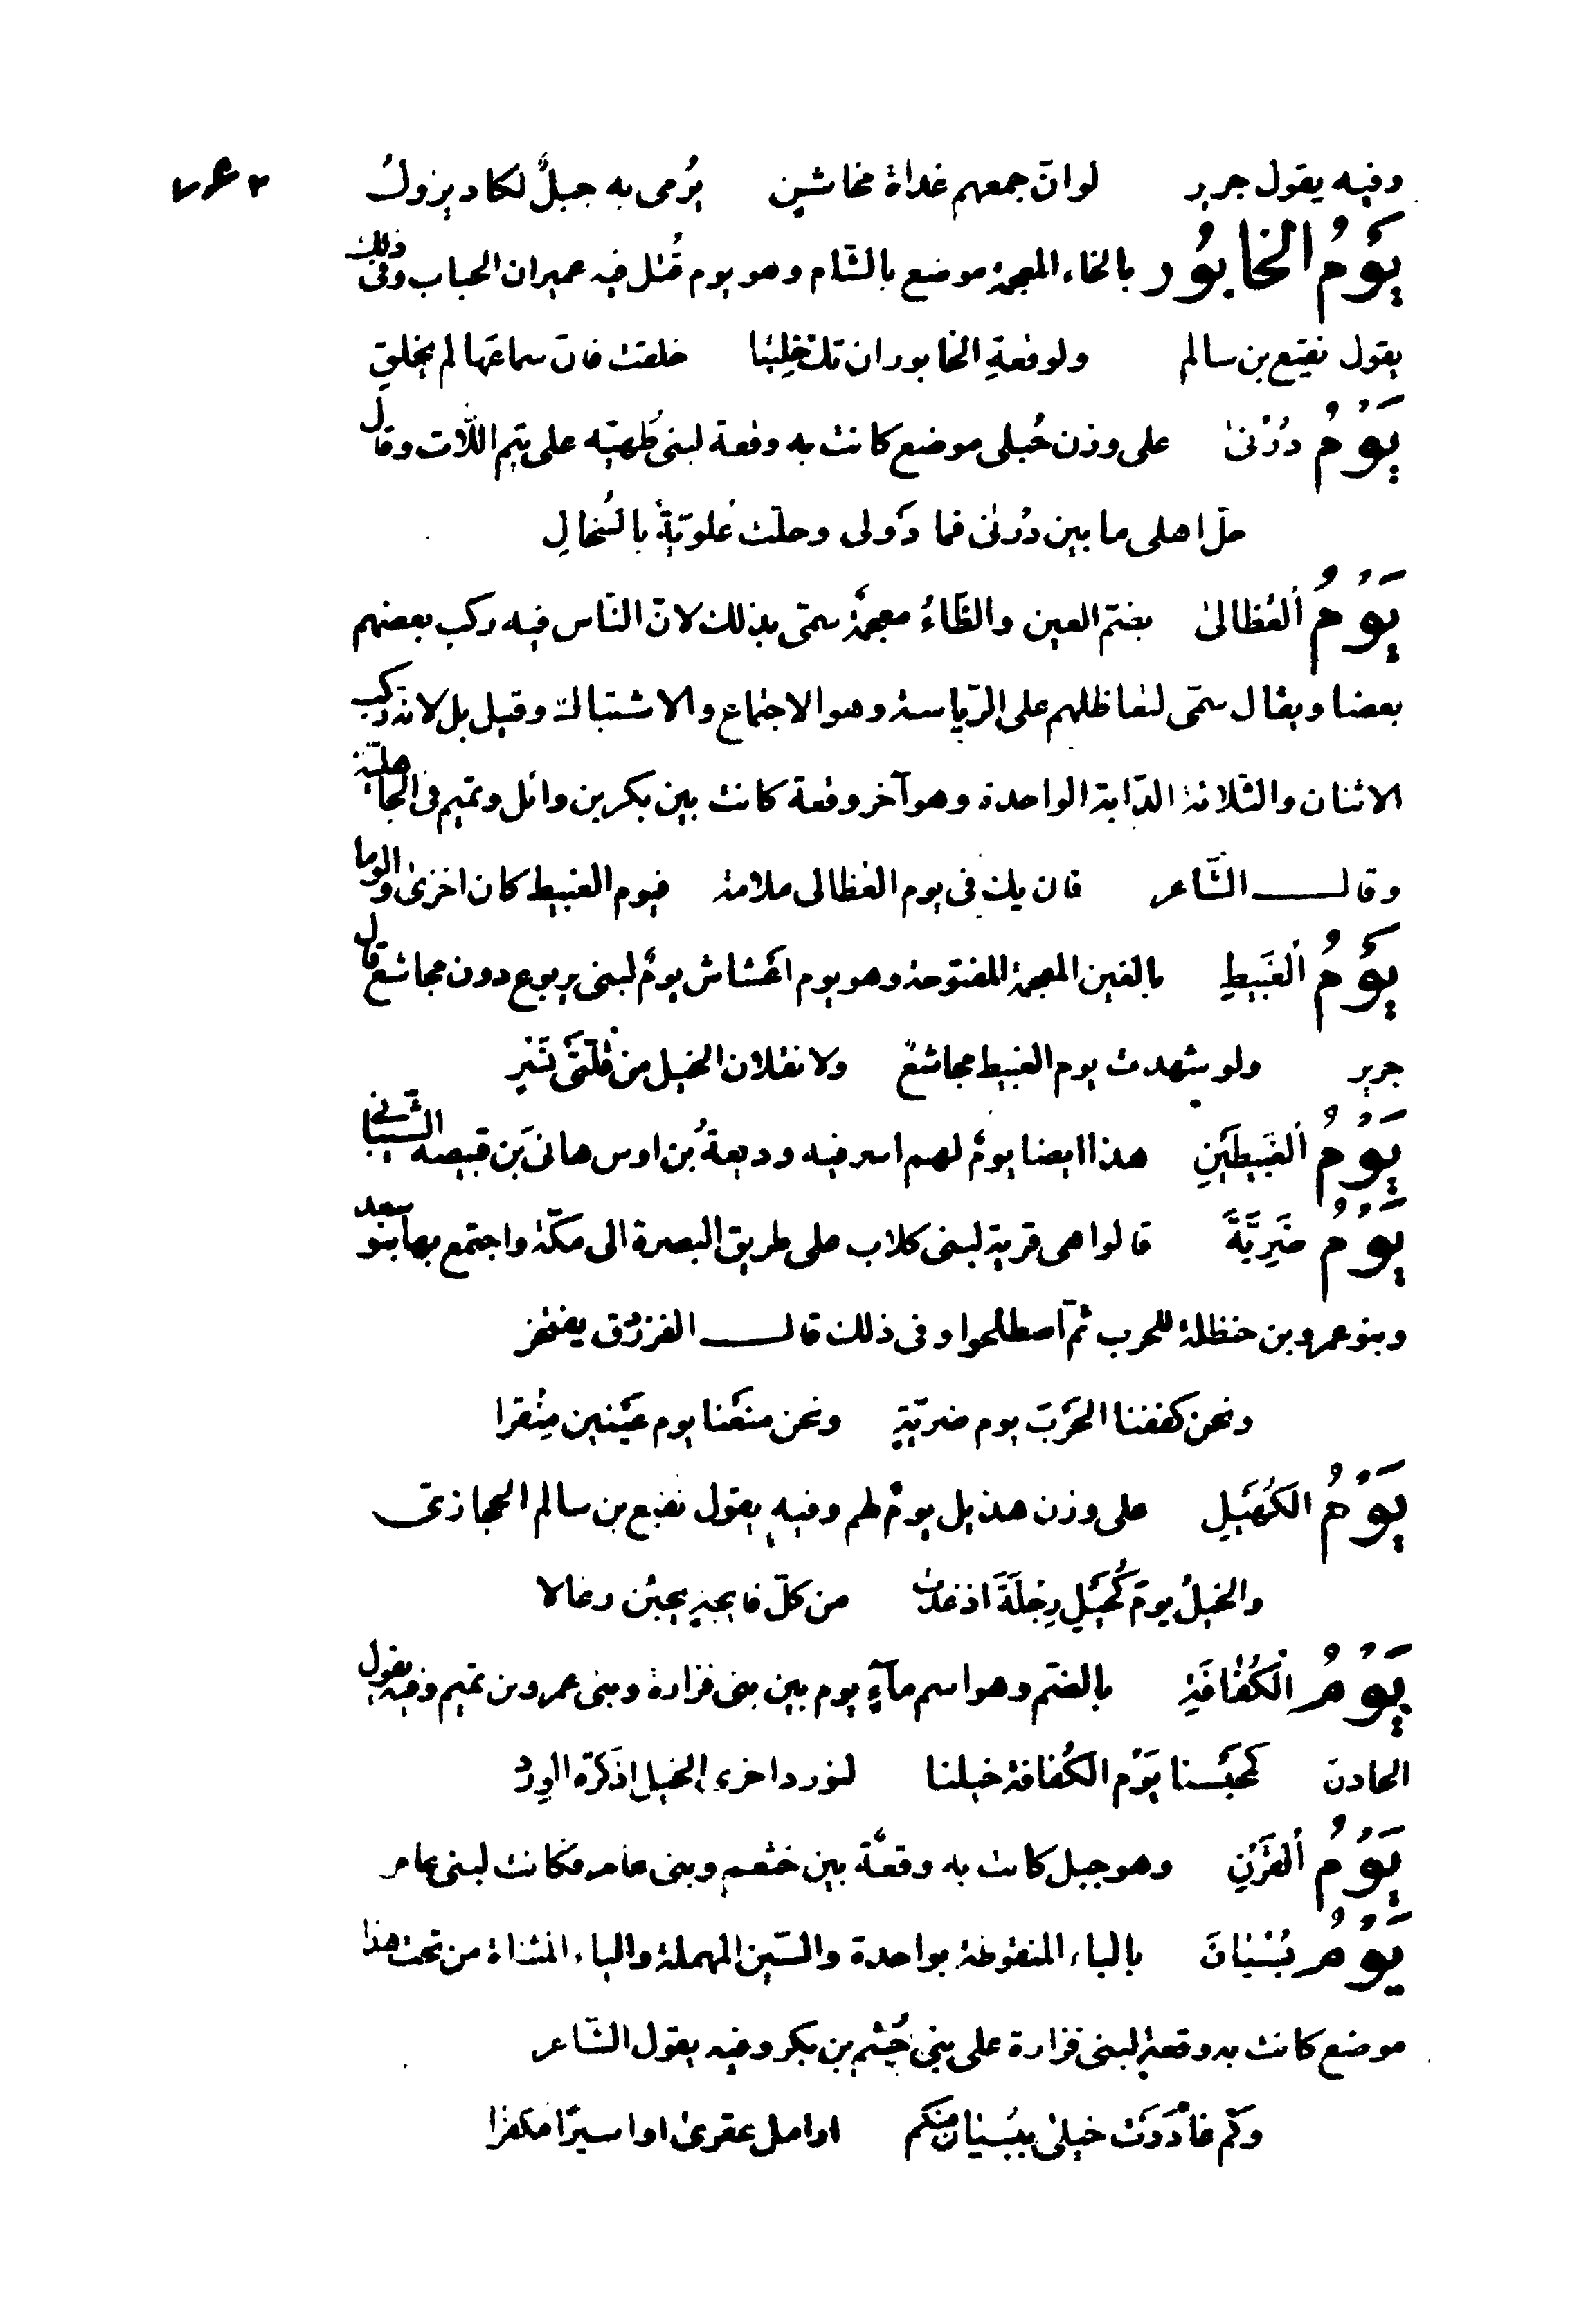 وفيه يقول جرير لو ان جمعهم غداة مخاشين يُرمى به جبلٌ لكاد يزولُ
يَوْمُ الخابُور بالخاء المعجمة موضع بالشّام وهو يوم قُتل فيه عمير ان الحباب وفى ذلك
يقول نفيع بن سالم ولوقعةِ الخابور ان تك خلقت فانّ سماعها لم يخلقِ
يَوْمُ دُرْنىٰ على وزن حُبلى موضع كانت به وقعة لبنى طُهيّه على تيم اللّات وقال
حلّ اهلى ما بين دُرنى فبا دَولى وحلّت عُلويّةٌ بالسُخالِ
يَوْمُ اَلعُظالىٰ بضمّ العين والظّاءُ معجمةٌ سمّى بذلك لانّ النّاس فيه ركب بعضهم
بعضا ويقال سمّى لتعاظلهم على الرّياسة وهو الاجتماع والاشتباك وقيل بل لانه ركب
الاثنان والثّلاثة الدّابة الواحدة وهو آخر وقعة كانت بين بكر بن وائل وتميم فى الجاهليّة
وقال الشّاعر فان يك فى يوم العظالى ملامة فيوم الغبيط كان اخزىٰ والوما
يَوْمُ اَلغَبيطِ بالغين المعجمة المفتوحة وهو يوم اعشاش يومٌ لبنى يربوع دون مجاشع قال
جرير ولو شهدت يوم الغبيط مجاشعٌ ولا نقلان الخيل من قُلّتَى نَسْرِ
يَوْمُ اَلغَبيطَينِ هذا ايضا يومٌ لهم اسر فيه وديعةُ بن اوس هانئَ بَن قبيصه الشّيبانى
يَوْمُ ضَرِيَّةَ قالوا هى قرية لبنى كلاب على طريق البصرة الى مكّة واجتمع بها بنو سعد
وبنو عمرو بن حنظلة للحرب ثمّ اصطلحوا وفى ذلك قال الفرزدق يفتخر
ونحن كففنا الحَرْبَ يوم ضريّةٍ ونحن منعْنا يوم عيْنين مِنْقرا
يَوْمُ الكُهَيلِ على وزن هذيل يومٌ لهم وفيه يقول نفيع بن سالم الحجازىّ
والخيلُ يومَ كُحَيلِ رِجْلَةَ اذ غدت من كلّ فايجةٍ يجئن رعالا
يَوْمُ اْلكُفَافَةِ بالضّم وهو اسم مآءٍ يوم بين بنى فزارة وبنى عمرو بن تميم وفيه يقول
الحادرة كمحْبَسنا يَوْم الكُفافة خيلنا لنورد اخرى الخيل اذ كره الوِرْدُ
يَوْمُ اَلقَرْنِ وهو جبل كانت به وقعَة بين خثعم وبنى عامر فكانت لبنى عامر
يَوْمُ بُسْيَانَ بالباء المنقوطة بواحدة والسّين المهملة والياء المثناة من تحت هذا
موضع كانت به وقعة لبنى فزارة على بنى جُشَم بن بكر وفيه يقول الشّاعر
وكم غادَرَتْ خيلى ببُسْيان منكم ارامل عقرىٰ او اسيرًا مكفرا